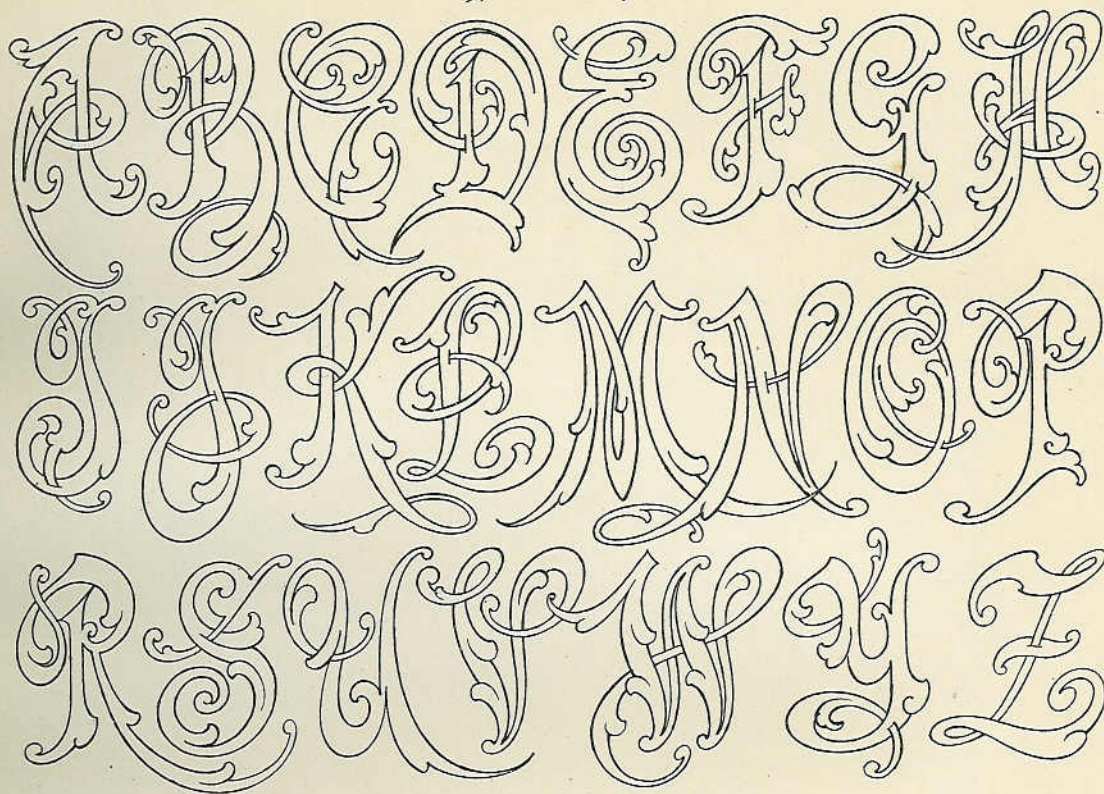 A B C D E F G H
I J K L M N O P
R S U V W Y Z